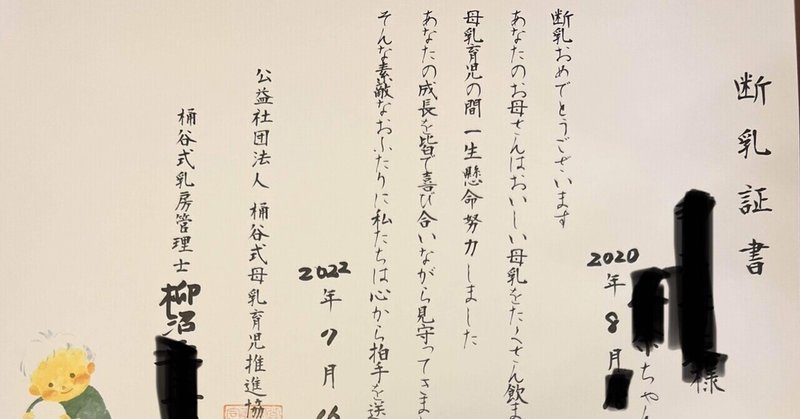 断乳証書
様
ちゃん
2020年8月
断乳おめでとうございます
あなたのお母さんはおいしい母乳をたくさん飲ま
母乳育児の間一生懸命努力しました
あなたの成長を皆で喜び合いながら見守ってきま
そんな素敵なおふたりに私たちは心から拍手を送
2022年7月16
公益社団法人 桶谷式母乳育児推進協
桶谷式乳房管理士 柳沼